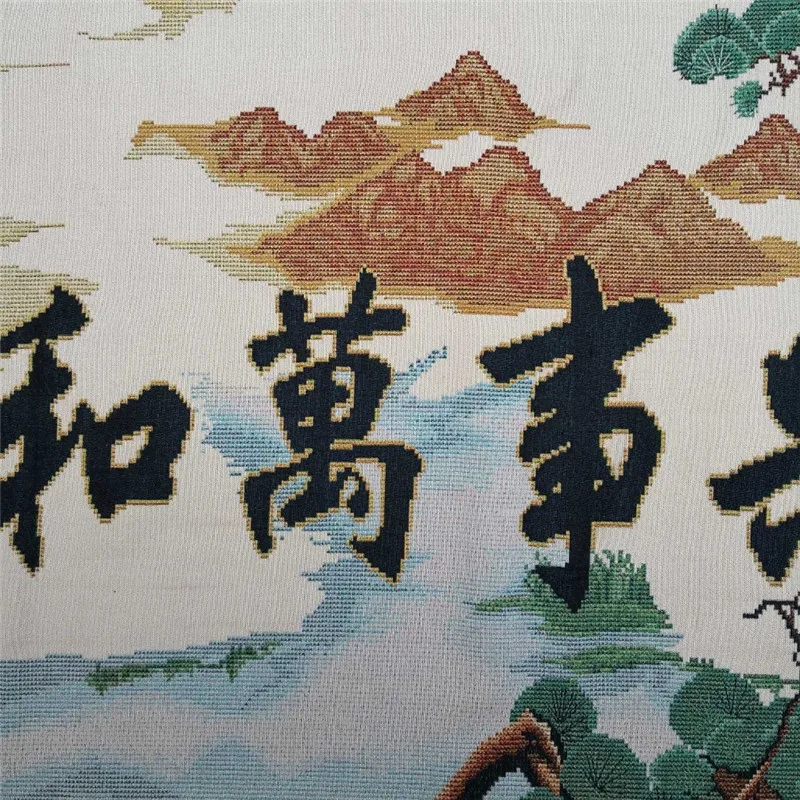 和萬事